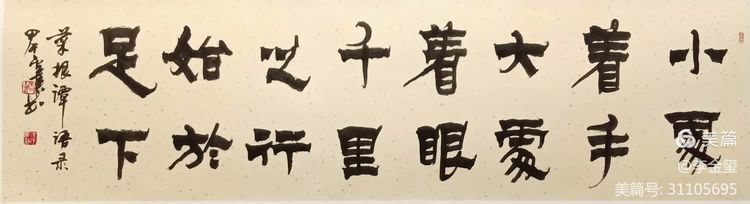 小處
着手
大處
着眼
千里
之行
始於
足下
菜根譚语录
美篇
@李金玺
美篇号: 31105695